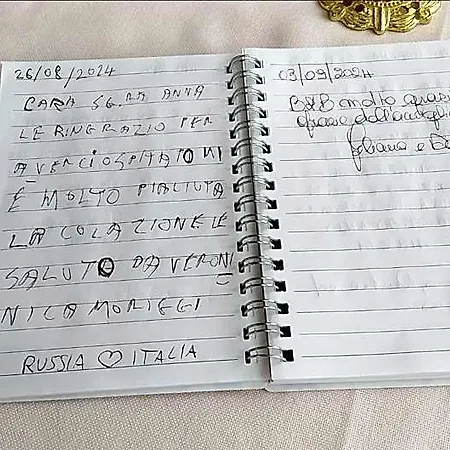 26/08/2024
CARA SG.RA ANNA
LE RINGRAZIO PER
AVERCI OSPITATO MI
È MOLTO PIACIUTA
LA COLAZIONE LE
SALUTO DA VERONI
NICA MORIGGI
RUSSIA ♡ ITALIA
03/09/2024
B&B molto
e